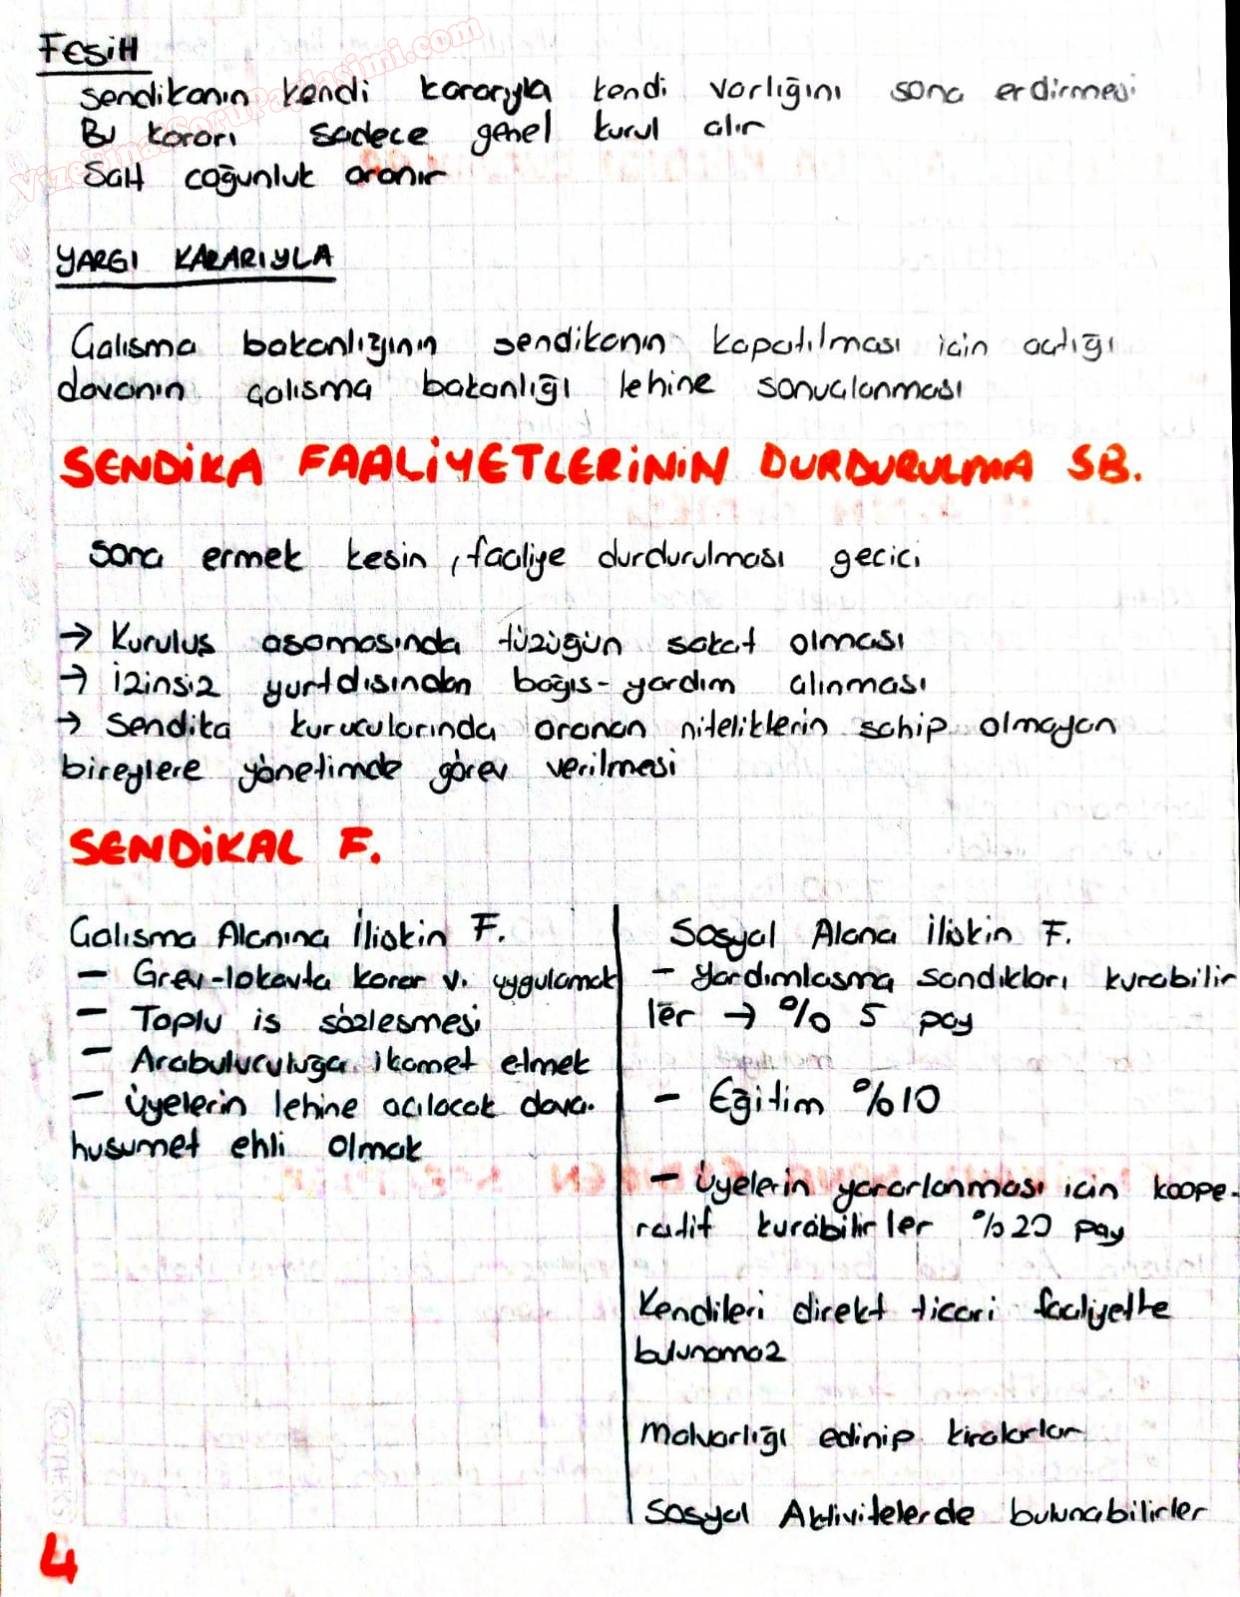 FESİH
Sendikanın kendi kararıyla kendi varlığını sona erdirmesi
Bu kararı sadece genel kurul alır
Salt çoğunluk aranır
YARGI KARARIYLA
Çalısma bakanlığının sendikanın kapatılması için açtığı
davanın çalısma bakanlığı lehine sonuçlanması
SENDİKA FAALİYETLERİNİN DURDURULMA SB.
sona ermek kesin, faaliye durdurulması gecici
→ Kuruluş asamasında tüzüğün sakat olması
→ İzinsiz yurtdısından bağıs-yardım alınması
→ Sendika kurucularında aranan niteliklerin sahip olmayan
bireylere yönetimde görev verilmesi
SENDİKAL F.
Çalısma Alanına İliskin F.
- Grev-lokavta karar v. uygulamak
- Toplu is sözlesmesi
- Arabuluculuğa ikamet etmek
- Üyelerin lehine açılacak dava.
husumet ehli olmak
Sosyal Alana İliskin F.
- Yardımlasma sandıkları kurabilir
ler → %5 pay
- Eğitim %10
- Üyelerin yararlanması için koope-
ratif kurabilirler %20 pay
Kendileri direkt ticari faaliyette
bulunamaz
Malvarlığı edinip kiralarlar
Sosyal Aktivitelerde bulunabilirler
4
VizeFinalSoruPaylasimi.com